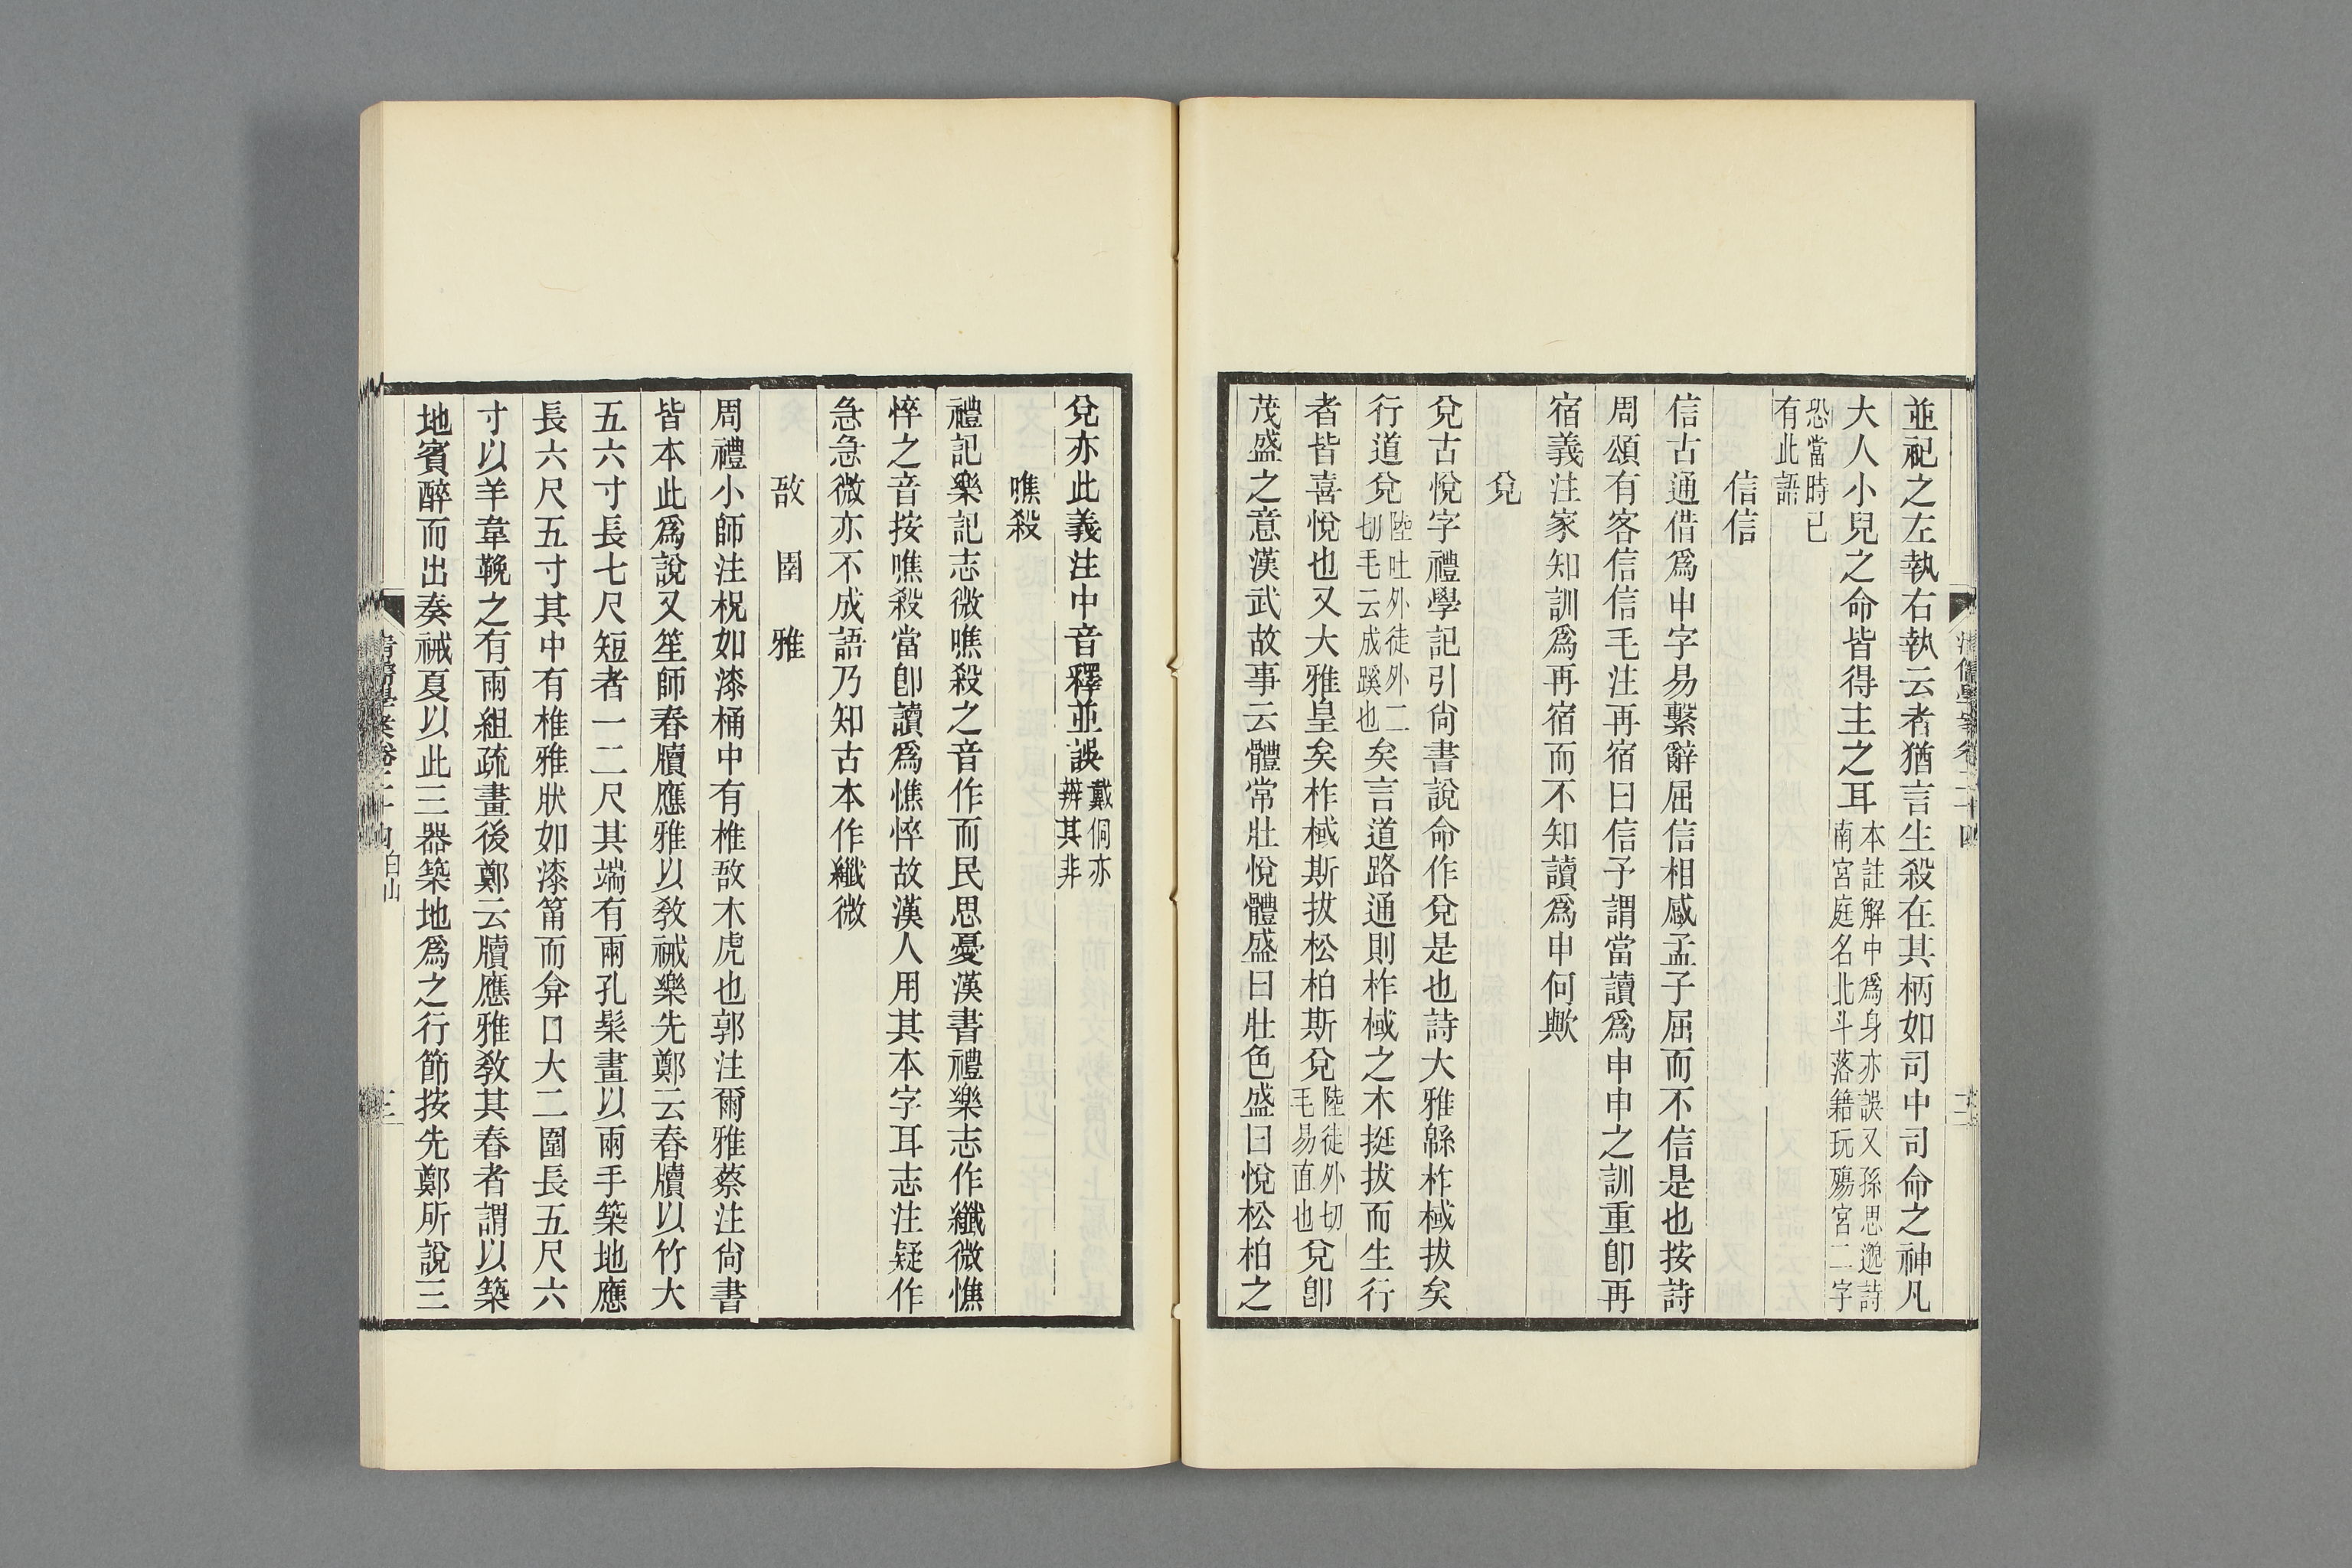 並祀之左執右執云者猶言生殺在其柄如司中司命之神凡
大人小兒之命皆得主之耳本註解中爲身亦誤又孫思邈詩南宮庭名北斗落籍玩殤宮二字
恐當時已有此語
信信
信古通借爲申字易繫辭屈信相感孟子屈而不信是也按詩
周頌有客信信毛注再宿曰信予謂當讀爲申申之訓重卽再
宿義注家知訓爲再宿而不知讀爲申何歟
兌
兌古悅字禮學記引尙書說命作兌是也詩大雅緜柞棫拔矣
行道兌陸吐外徒外二切毛云成蹊也矣言道路通則柞棫之木挺拔而生行
者皆喜悅也又大雅皇矣柞棫斯拔松柏斯兌陸徒外切毛易直也兌卽
茂盛之意漢武故事云體常壯悅體盛曰壯色盛曰悅松柏之
清儒學案卷二十四
兌亦此義注中音釋並誤戴侗亦辨其非
噍殺
禮記樂記志微噍殺之音作而民思憂漢書禮樂志作纖微憔
悴之音按噍殺當卽讀爲憔悴故漢人用其本字耳志注疑作
急急微亦不成語乃知古本作纖微
敔 圉 雅
周禮小師注柷如漆桶中有椎敔木虎也郭注爾雅蔡注尙書
皆本此爲說又笙師舂牘應雅以敎祴樂先鄭云舂牘以竹大
五六寸長七尺短者一二尺其端有兩孔髤畫以兩手築地應
長六尺五寸其中有椎雅狀如漆筩而弇口大二圍長五尺六
寸以羊韋鞔之有兩組疏畫後鄭云牘應雅敎其舂者謂以築
地賓醉而出奏祴夏以此三器築地爲之行節按先鄭所說三